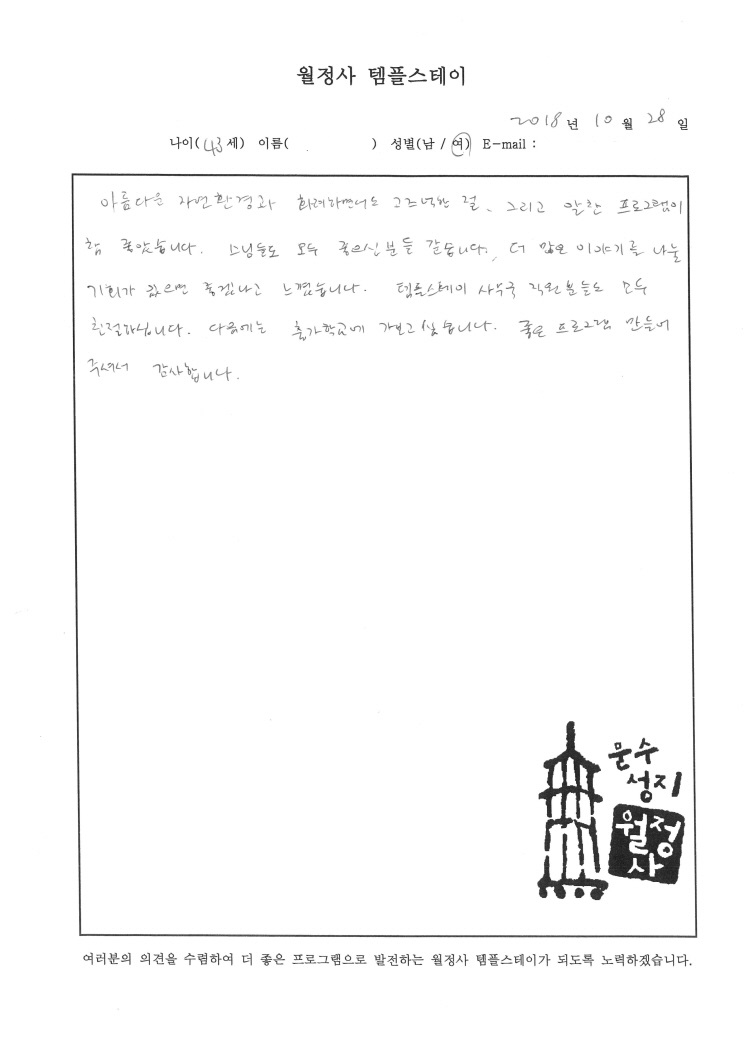 월정사 템플스테이
2018년 10월 28일
나이(43세) 이름( ) 성별(남 / 여) E-mail :
아름다운 자연환경과 화려하면서도 고즈넉한 절, 그리고 알찬 프로그램이
참 좋았습니다. 스님들도 모두 좋으신 분들 같습니다. 더 많은 이야기를 나눌
기회가 있으면 좋겠다고 느꼈습니다. 템플스테이 사무국 직원분들도 모두
친절하십니다. 다음에는 출가학교에 가보고 싶습니다. 좋은 프로그램 만들어
주셔서 감사합니다.
문수
성지
월정
사
여러분의 의견을 수렴하여 더 좋은 프로그램으로 발전하는 월정사 템플스테이가 되도록 노력하겠습니다.